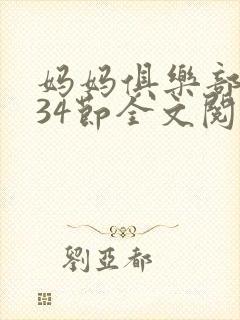 妈妈俱樂部
34節全文閱
劉亞都